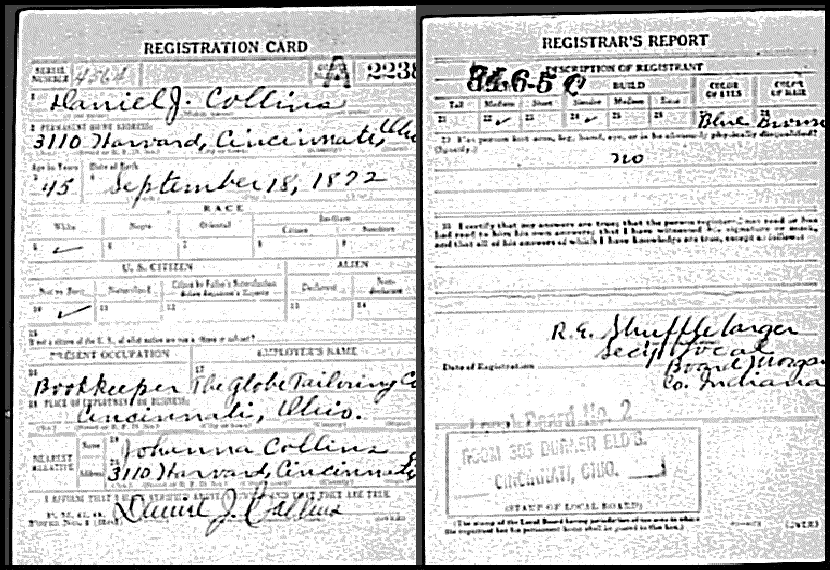 REGISTRATION CARD
SERIAL NUMBER 4364
A 2238
1 Daniel J. Collins
2 PERMANENT HOME ADDRESS:
3110 Harvard, Cincinnati, Ohio
Age in Years
Date of Birth
45 September 18, 1872
RACE
White Negro Oriental Indian
Citizen
5 6 7 8 9
U. S. CITIZEN ALIEN
10 11 12 13 14
15
If not a citizen of the U. S., of what nation are you a citizen or subject?
PRESENT OCCUPATION EMPLOYER'S NAME
16 Bookkeeper 17 The Globe Tailoring Co
18 PLACE OF EMPLOYMENT OR BUSINESS:
Cincinnati, Ohio.
NEAREST RELATIVE
Name 19 Johanna Collins
Address 3110 Harvard, Cincinnati
I AFFIRM THAT I HAVE VERIFIED ABOVE ANSWERS AND THAT THEY ARE TRUE
Daniel J. Collins
REGISTRAR'S REPORT
34-6-5 C
DESCRIPTION OF REGISTRANT
BUILD COLOR OF EYES COLOR OF HAIR
Tall Medium Short Slender Medium Stout
21 22 23 24 25 26 Blue Brown
no
30. I certify that my answers are true; that the person registered has read or has
had read to him his own answers; that I have witnessed his signature or mark,
and that all of his answers of which I have knowledge are true, except as follows:
R. E. Shufflebarger
Sec'y Local
Date of Registration
Board Morgan
Co. Indiana
Local Board No. 2
ROOM 305 BLD'G.
CINCINNATI, OHIO.
(STAMP OF LOCAL BOARD)
(The stamp of the Local Board having jurisdiction of the area in which
the registrant has his permanent home shall be placed in this box.)
(OVER)